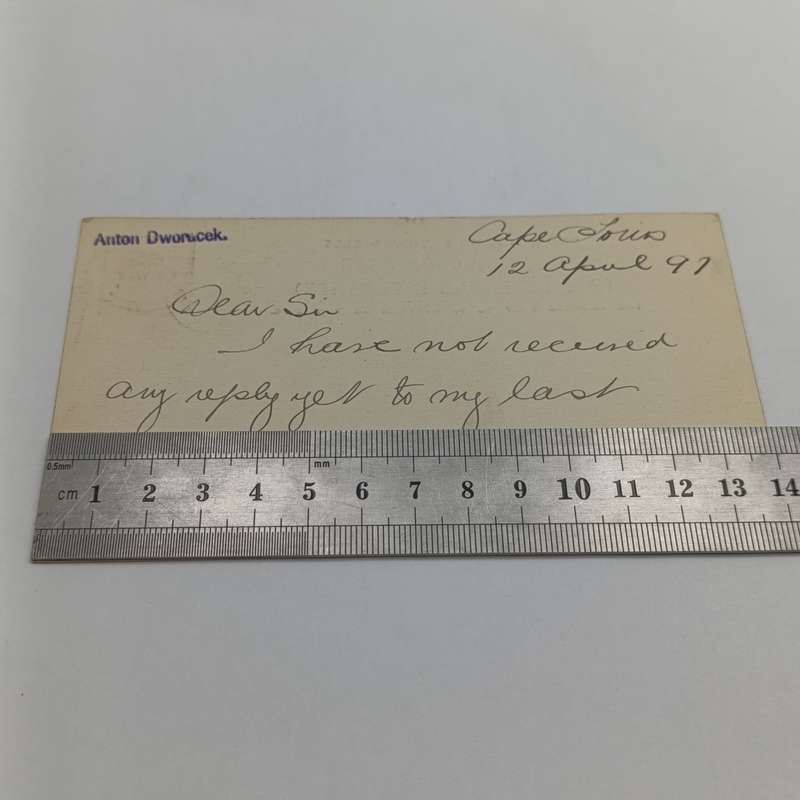 Anton Dworacek.
Cape Town
12 April 97
Dear Sir
I have not received
any reply yet to my last
0.5mm mm
cm 1 2 3 4 5 6 7 8 9 10 11 12 13 14